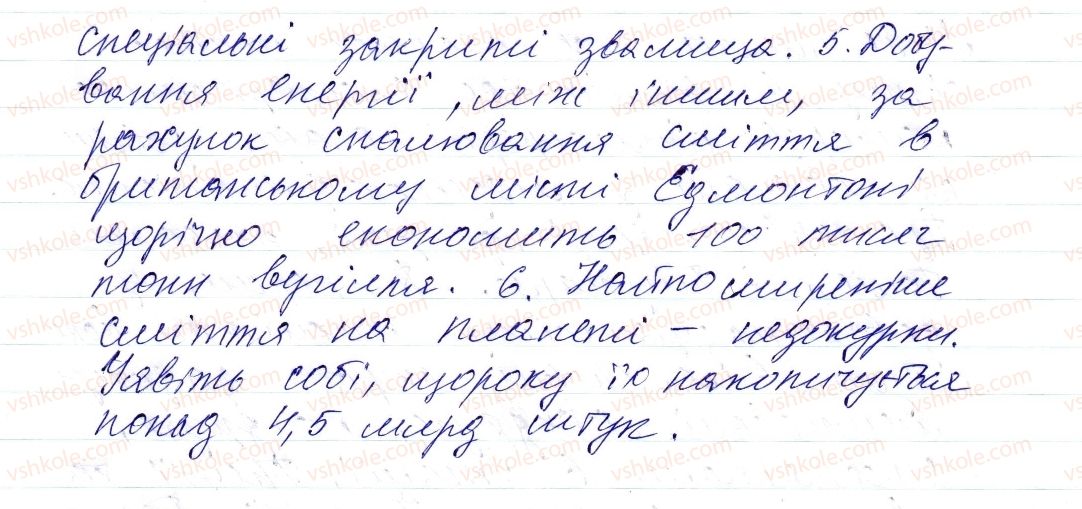 спеціальні закриті звалища. 5. Добу-
вання енергії, між іншим, за
рахунок спалювання сміття в
британському місті Едмонтоні
щорічно економить 100 тисяч
тонн вугілля. 6. Найпоширеніше
сміття на планеті – недокурки.
Уявіть собі, щороку їх накопичується
понад 4,5 млрд штук.